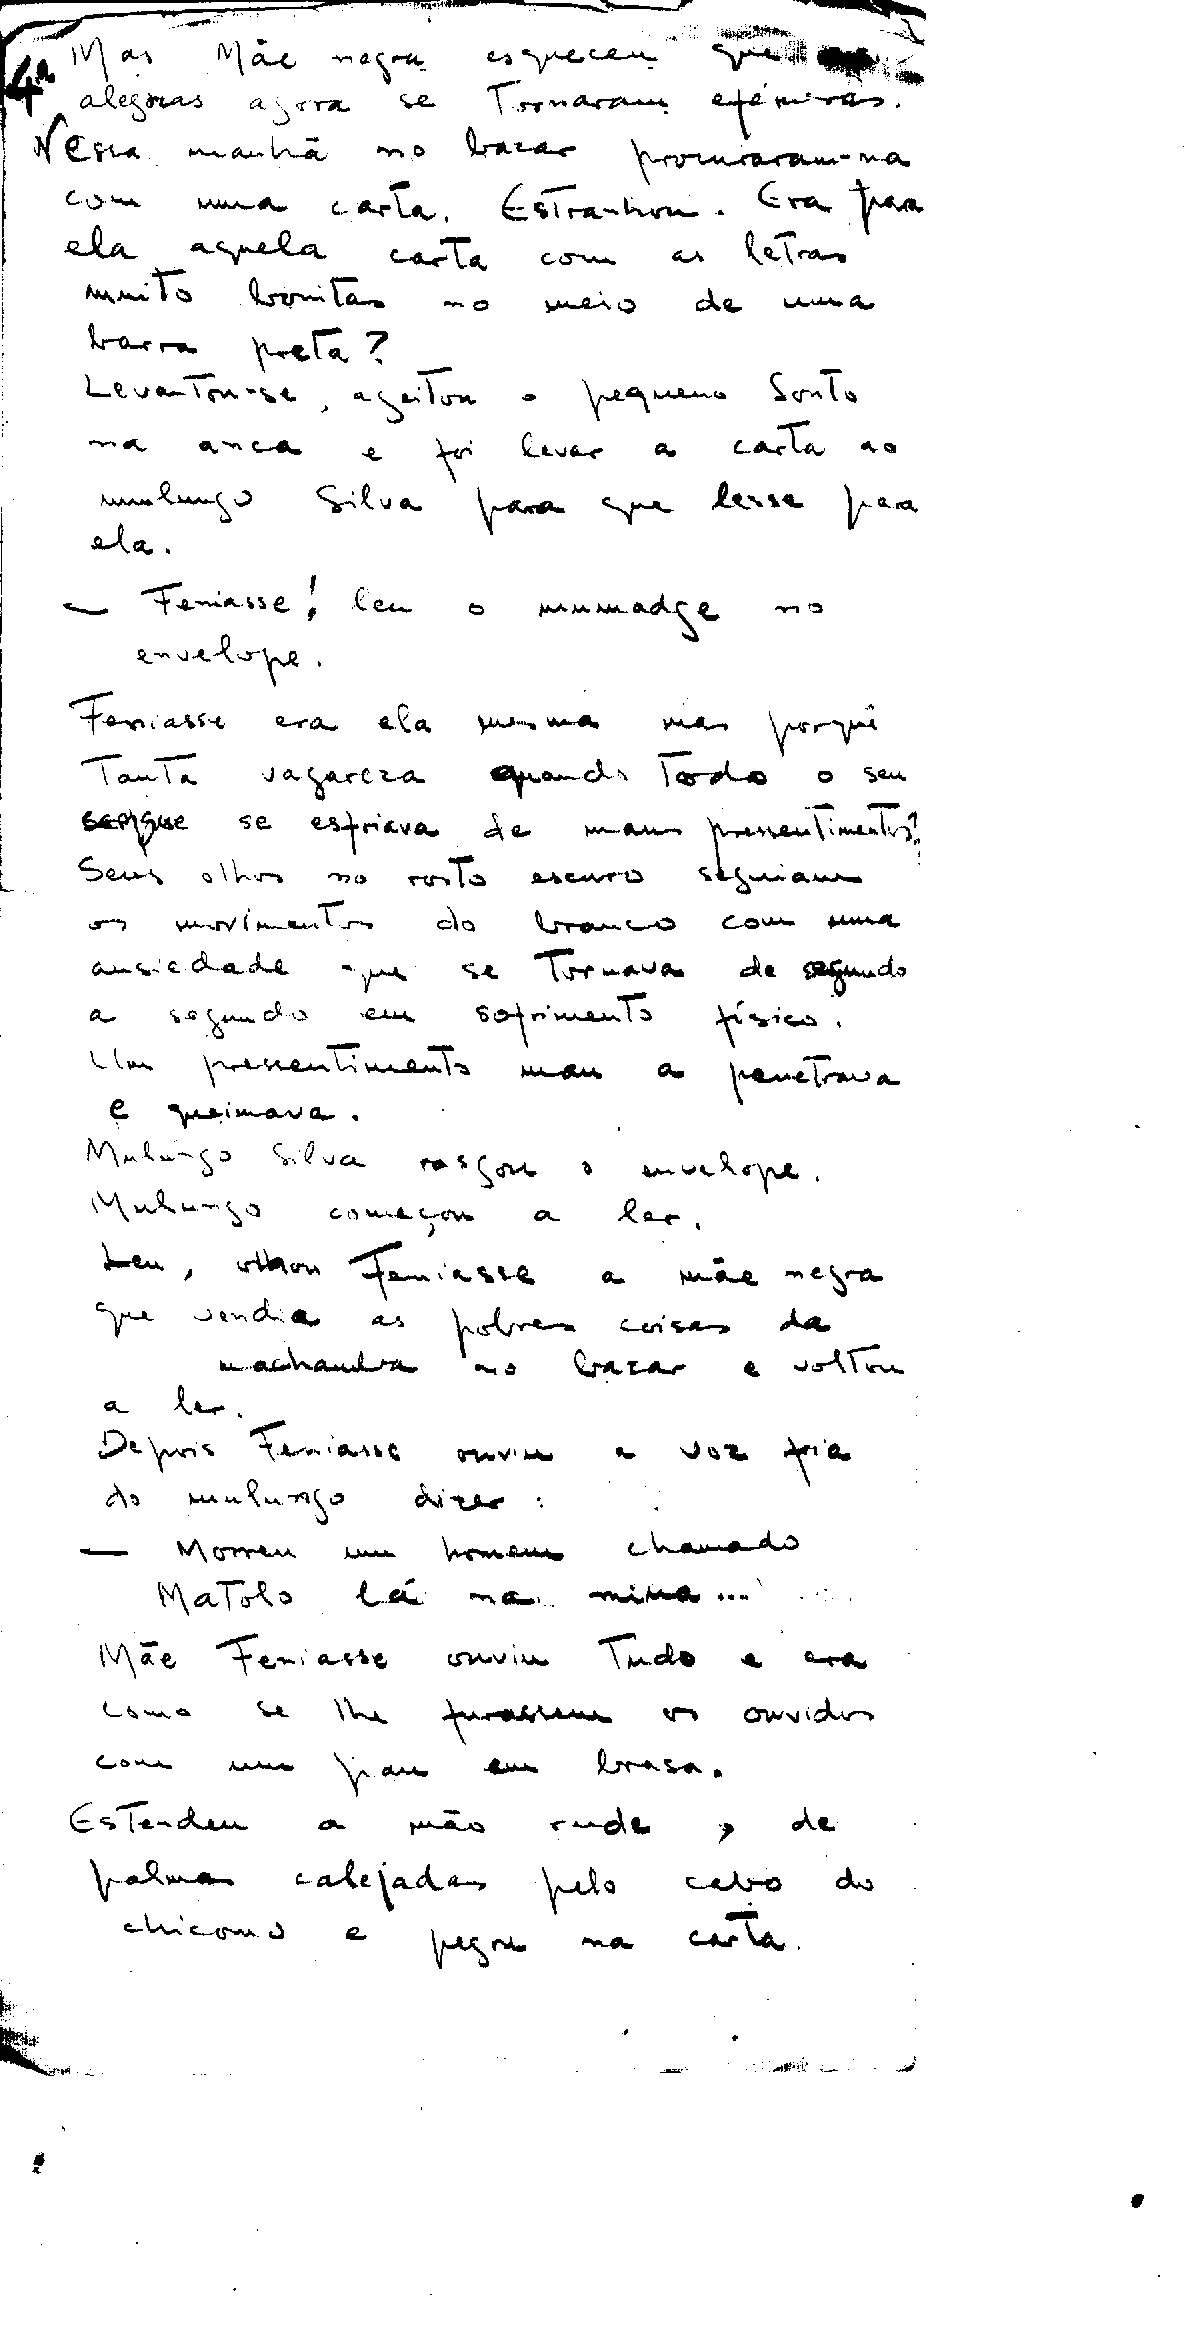 4ª
Mas Mãe negra esqueceu que as
alegrias agora se Tornaram efémeras.
Nessa manhã no bazar procuraram-na
com uma carta. Estranhou. Era para
ela aquela carta com as letras
muito bonitas no meio de uma
barra preta?
Levantou-se, ageitou o pequeno Souto
na anca e foi levar a carta ao
mulungo Silva para que lesse para
ela.
— Feniasse! leu o mumadge no
envelope.
Feniasse era ela mesma mas porquê
Tanta vagareza quando Todo o seu
sangue se esfriava de maus pressentimentos?
Seus olhos no rosto escuro seguiam
os movimentos do branco com uma
ansiedade que se Tornava de segundo
a segundo em sofrimento físico.
Um pressentimento mau a penetrava
e queimava.
Mulungo Silva rasgou o envelope.
Mulungo começou a ler.
Leu, olhou Feniasse a mãe negra
que vendia as pobres coisas da
machamba no bazar e voltou
a ler.
Depois Feniasse ouviu a voz fria
do mulungo dizer:
— Morreu um homem chamado
Matolo lá na mina...
Mãe Feniasse ouviu Tudo e era
como se lhe furassem os ouvidos
com um pau em brasa.
Estendeu a mão rude, de
palmas calejadas pelo cabo do
chicomo e pegou na carta.